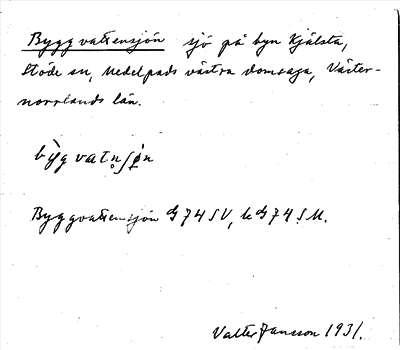 Byggvattensjön sjö på byn Kjälsta,
Stöde sn, Medelpads västra domsaga, Väster-
norrlands län.
bỳgvatn̥ʃø̀n
Byggvattensjön G74SV, k G74SM.
Valter Jansson 1931.